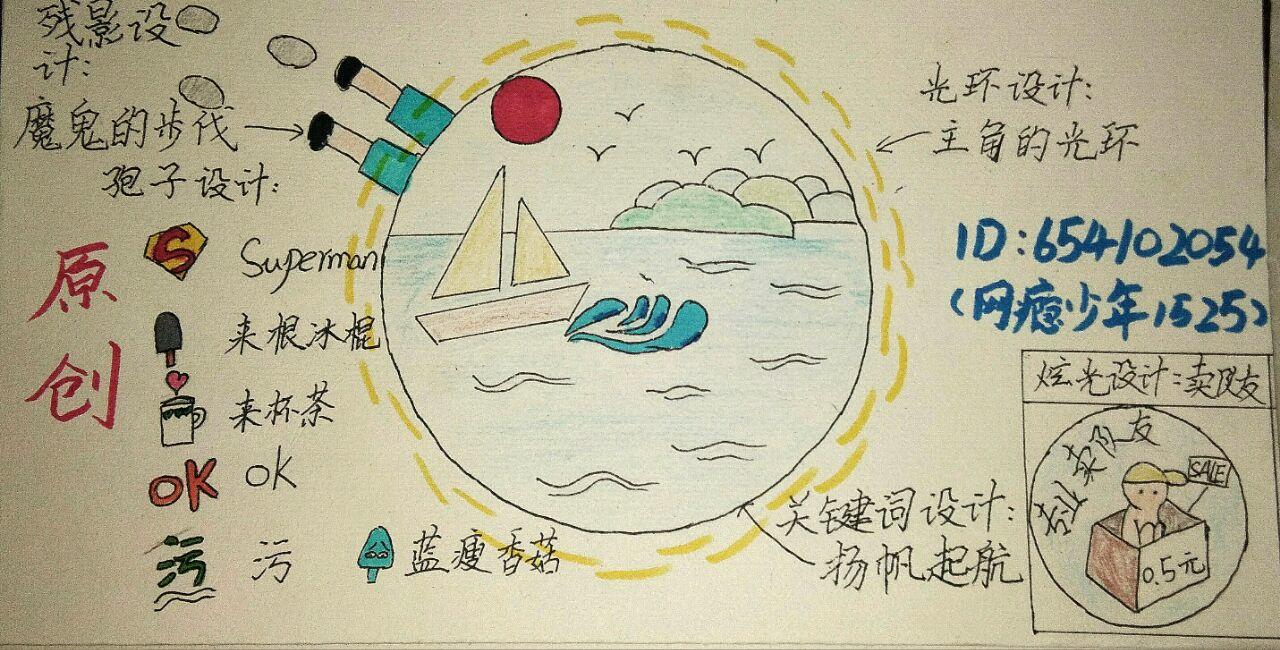 残影设
计:
魔鬼的步伐
孢子设计:
原创
S
Superman
来根冰棍
来杯茶
OK
OK
污
污
蓝瘦香菇
光环设计:
主角的光环
ID:654102054
(网瘾少年1525)
炫光设计:卖队友
专业卖队友
SALE
0.5元
关键词设计:
扬帆起航